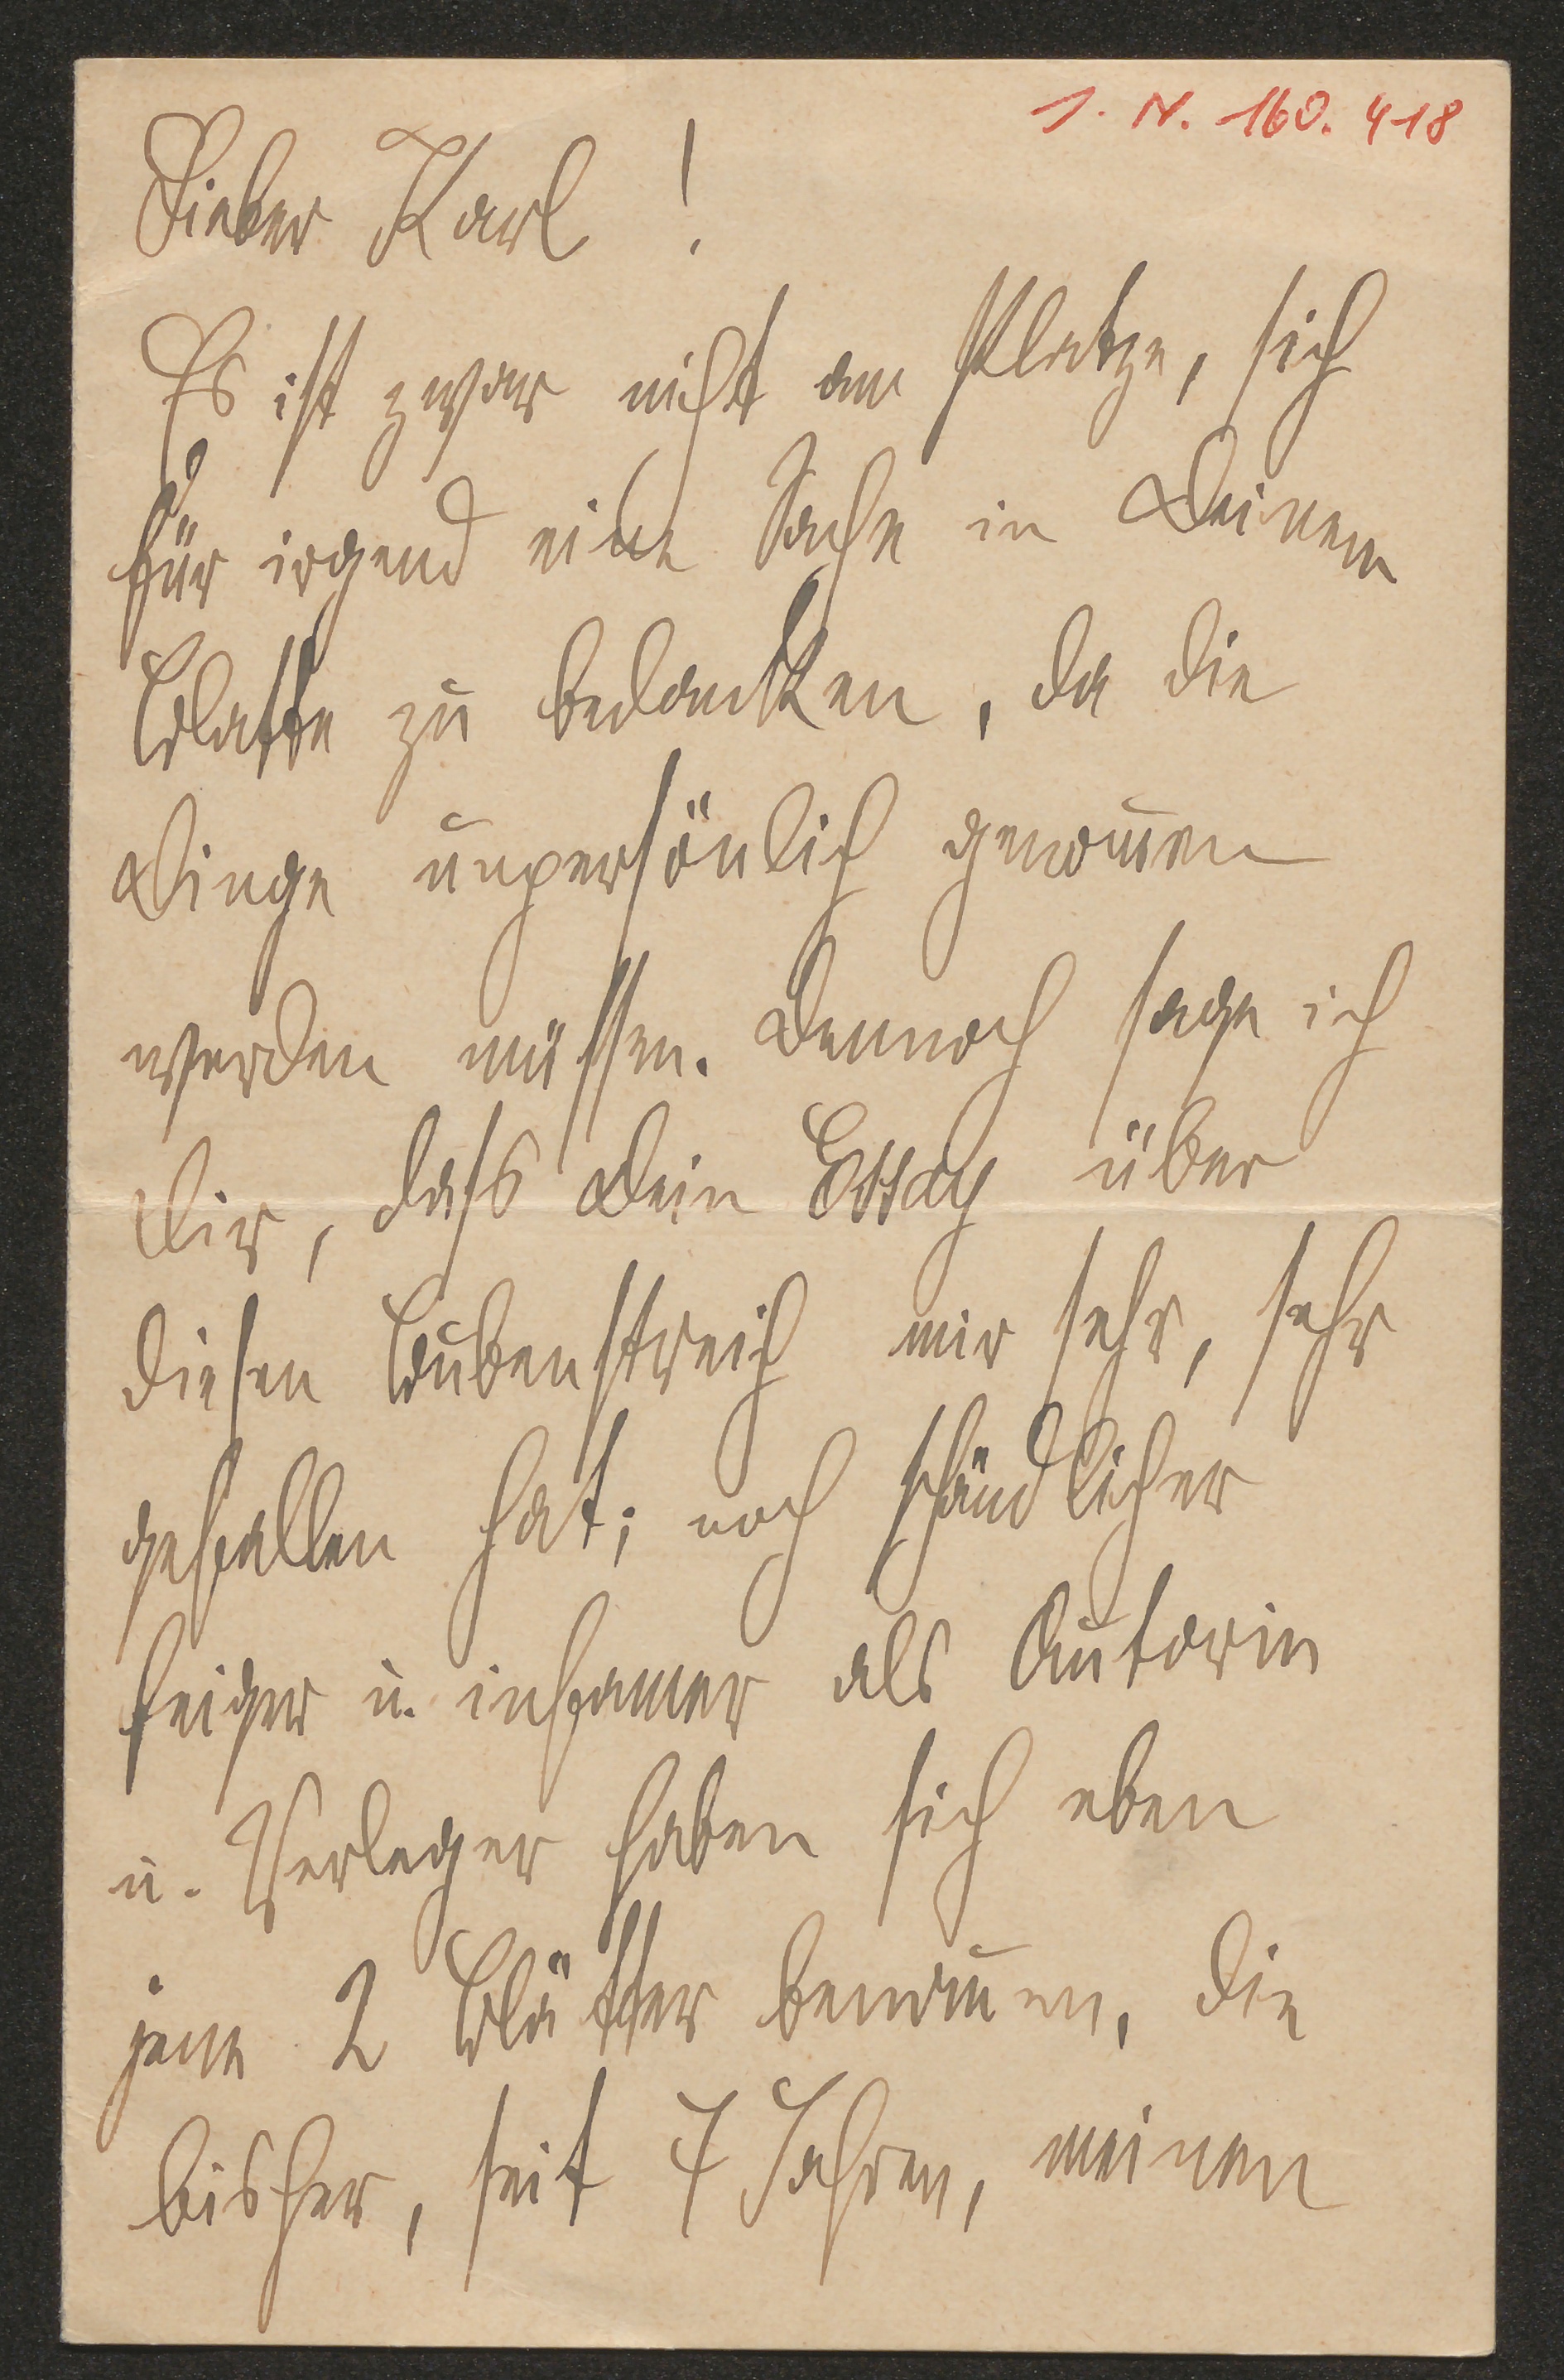 I. N. 160.418
Lieber Karl!
Es ist zwar nicht am Platze, sich
für irgend eine Sache in Deinem
Blatte zu bedanken, da die
Dinge unpersönlich genom̅en
werden müssen. Dennoch sage ich
Dir, dass Dein Essay über
diesen Bubenstreich mir sehr, sehr
gefallen hat; noch schändlicher
feiger u. infamer als Autorin
u. Verleger haben sich eben
jene 2 Blätter benom̅en, die
bisher, seit 7 Jahren, meinen